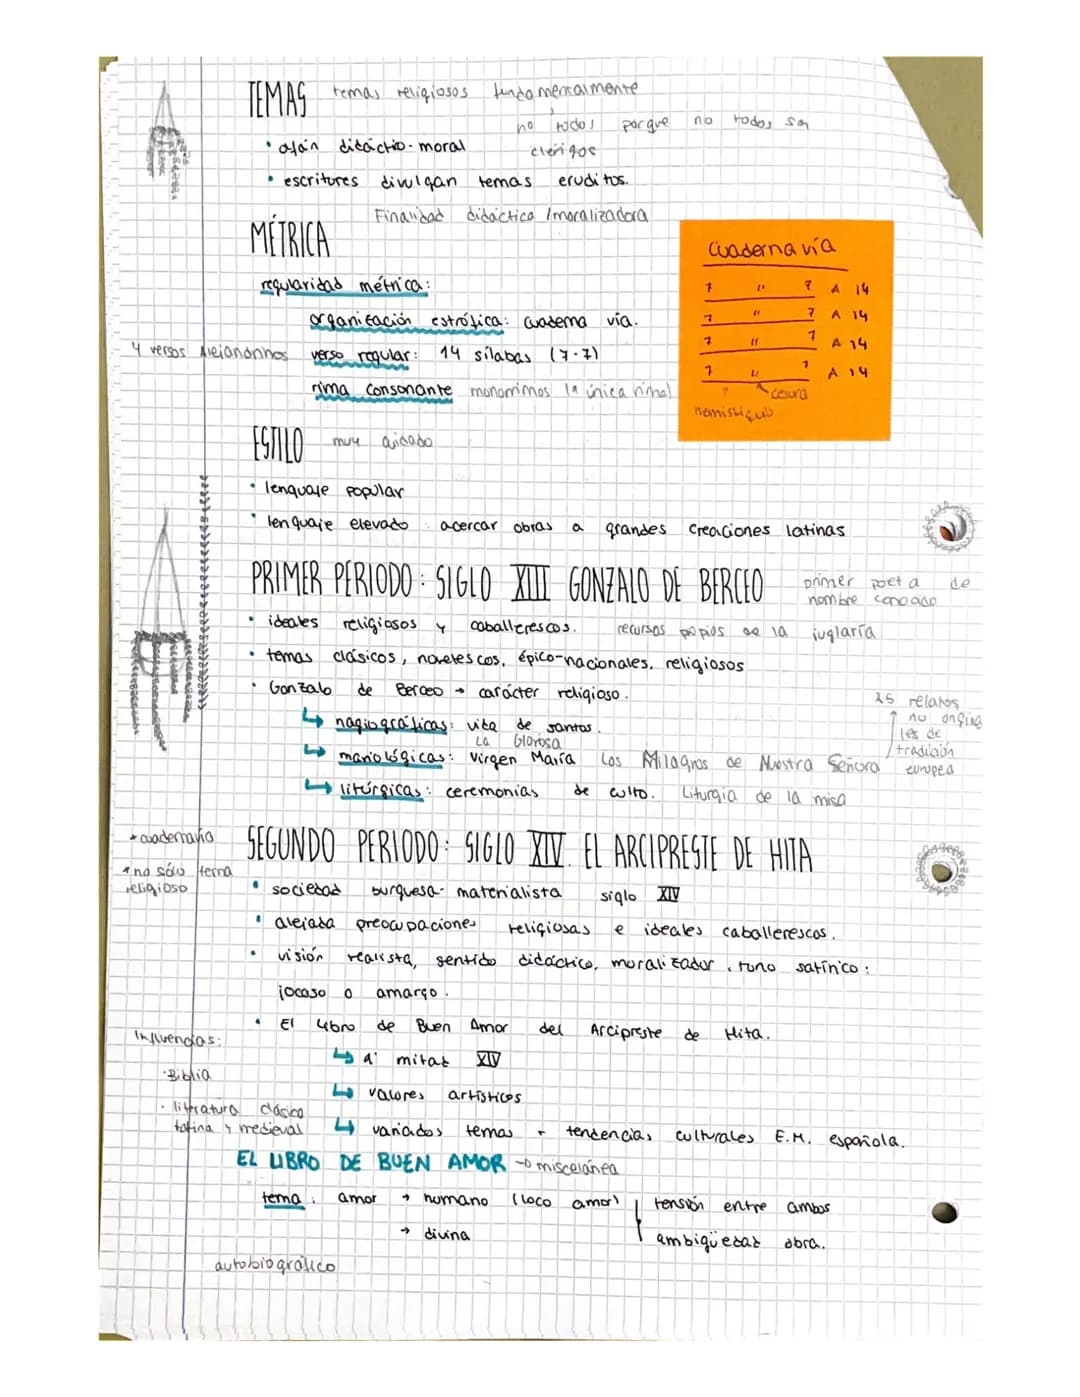 TEMAS temas religiosos fundamentalmente
no todos porque no todos son
clérigos
• afán didáctico-moral
• escritores divulgan temas eruditos.
Finalidad didáctica / moralizadora
MÉTRICA
regularidad métrica:
organización estrófica: cuaderna vía.
4 versos Alejandrinos verso regular: 14 sílabas (7-7)
rima consonante monorrimos (a única rima)
Cuaderna vía
7 " 7 A 14
7 " 7 A 14
7 " 7 A 14
7 " 7 A 14
cesura
hemistiquio
ESTILO muy cuidado
• lenguaje popular
• lenguaje elevado acercar obras a grandes creaciones latinas
PRIMER PERIODO: SIGLO XIII GONZALO DE BERCEO primer poeta de
nombre conocido
• ideales religiosos y caballerescos. recursos propios de la juglaría
• temas clásicos, novelescos, épico-nacionales, religiosos
• Gonzalo de Berceo → carácter religioso.
↳ hagiográficas: vida de santos.
La Glorosa
↳ mariológicas: Virgen María Los Milagros de Nuestra Señora
25 relatos
no origina
les de
tradición
europea
↳ litúrgicas: ceremonias de culto. Liturgia de la misa
SEGUNDO PERIODO: SIGLO XIV. EL ARCIPRESTE DE HITA
+ cuadernavía
* no sólo tema
religioso
• sociedad burguesa-materialista siglo XIV
• alejada preocupaciones religiosas e ideales caballerescos.
• visión realista, sentido didáctico, moralizador, tono satírico:
jocoso o amargo.
• El Libro de Buen Amor del Arcipreste de Hita.
↳ mitad XIV
↳ valores artísticos
↳ variados temas + tendencias culturales E.M. española.
Influencias:
· Biblia
· literatura clásica
latina y medieval
EL LIBRO DE BUEN AMOR → miscelánea
tema: amor → humano (loco amor) tensión entre ambos
→ divina ambigüedad obra.
autobiográfico